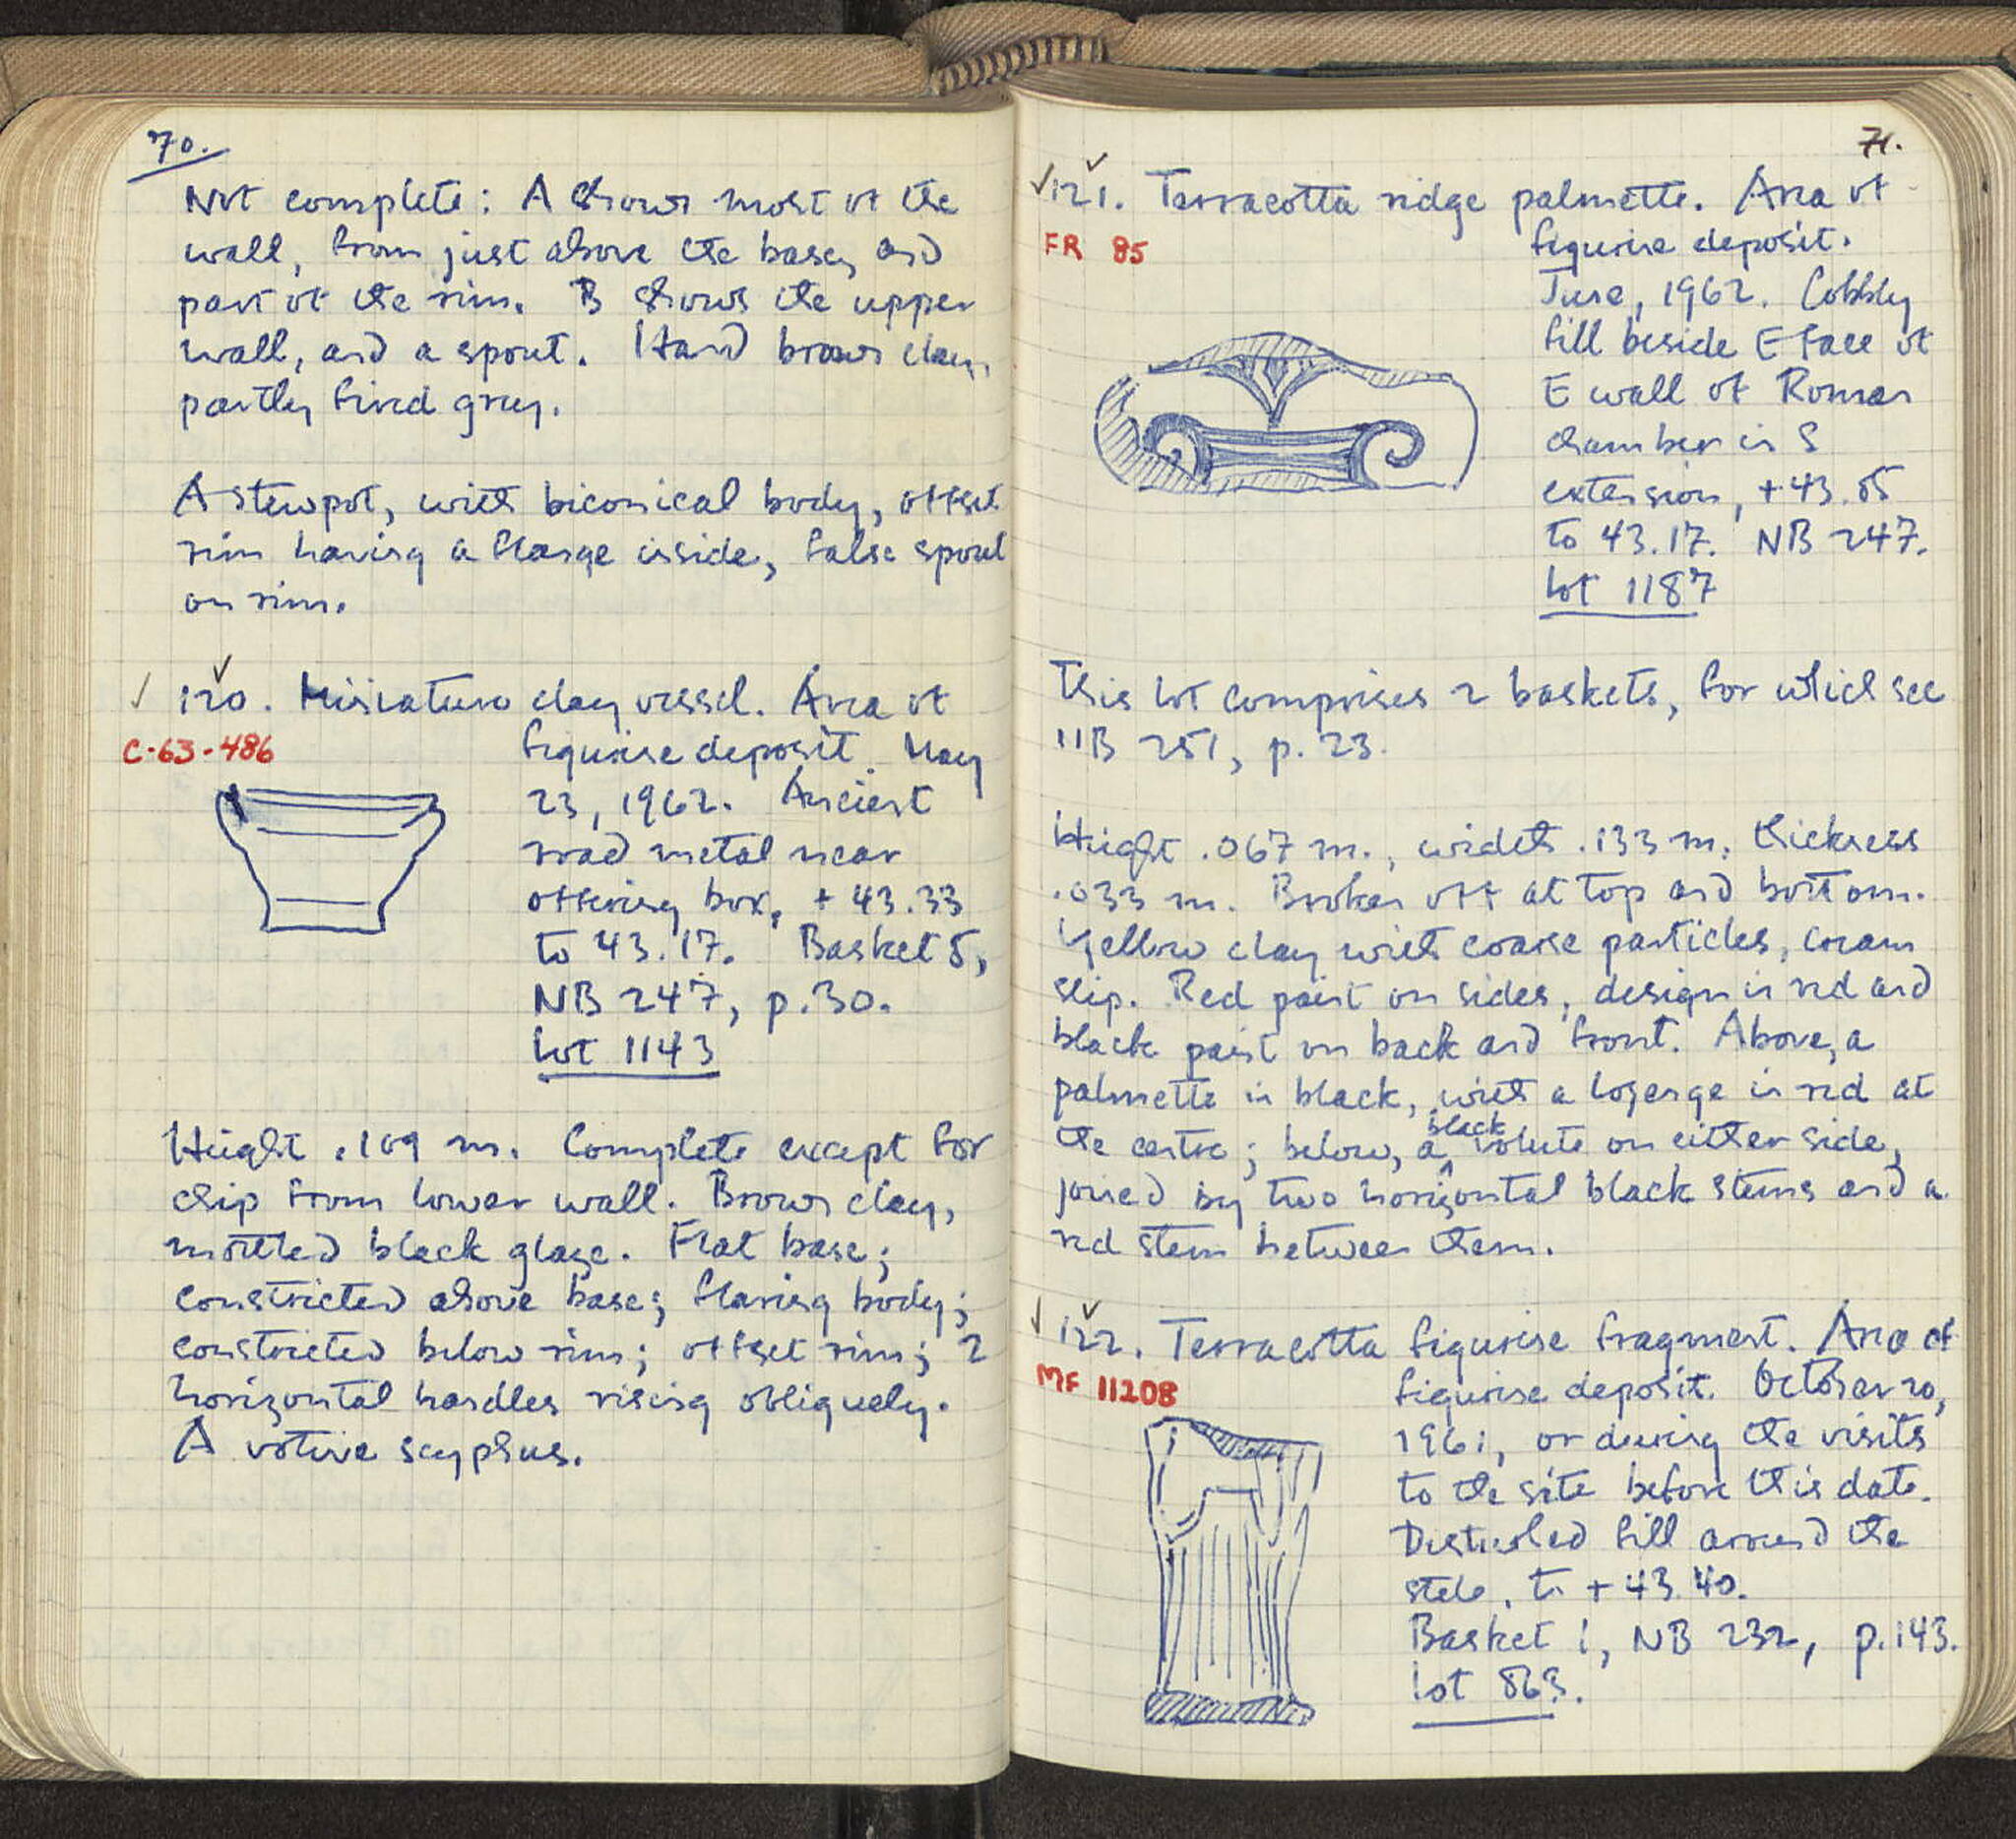 70.
Not complete: A shows most of the
wall, from just above the base, and
part of the rim. B shows the upper
wall, and a spout. Hard brown clay,
partly fired grey.
A stewpot, with biconical body, offset
rim having a flange inside, false spout
on rim.
120. Miniature clay vessel. Area of
C-63-486
figurine deposit. May
23, 1962. Ancient
road metal near
offering box, + 43.33
to 43.17. Basket 5,
NB 247, p. 30.
Lot 1143
Height .109 m. Complete except for
chip from lower wall. Brown clay,
mottled black glaze. Flat base;
constricted above base; flaring body;
constricted below rim; offset rim; 2
horizontal handles rising obliquely.
A votive scyphus.
71.
121. Terracotta ridge palmette. Area of
FR 85
figurine deposit.
June, 1962. Cobbly
fill beside E face of
E wall of Roman
chamber in S
extension, + 43.85
to 43.17. NB 247.
Lot 1187
This lot comprises 2 baskets, for which see
NB 251, p. 23.
Height .067 m., width .133 m, thickness
.033 m. Broken off at top and bottom.
Yellow clay with coarse particles, cream
slip. Red paint on sides, design in red and
black paint on back and front. Above, a
palmette in black, with a lozenge in red at
the centre; below, a black volute on either side,
joined by two horizontal black stems and a
red stem between them.
122. Terracotta figurine fragment. Area of
MF 11208
figurine deposit. October 20,
1961, or during the visits
to the site before this date.
Disturbed fill around the
stele, to + 43.40.
Basket 1, NB 232, p. 143.
Lot 863.